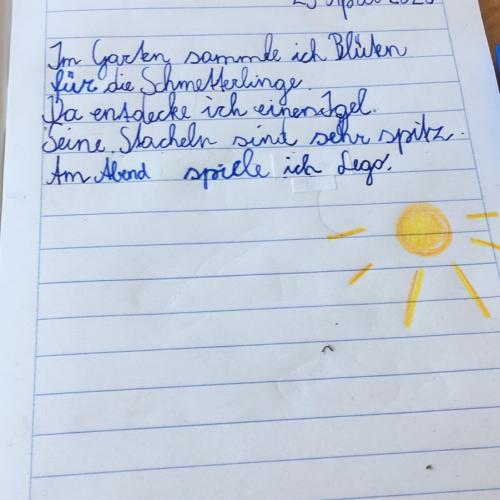 Im Garten sammle ich Blüten
für die Schmetterlinge.
Da entdecke ich einen Igel.
Seine Stacheln sind sehr spitz.
Am Abend spiele ich Lego.